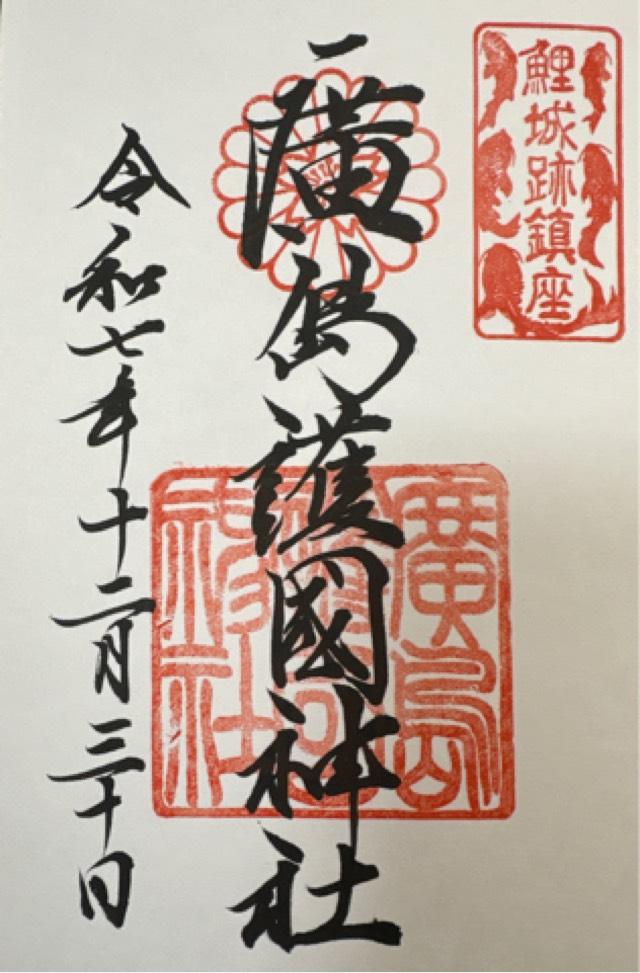 鯉城跡鎮座
廣島護國神社
廣島護國神社
令和七年十二月三十日